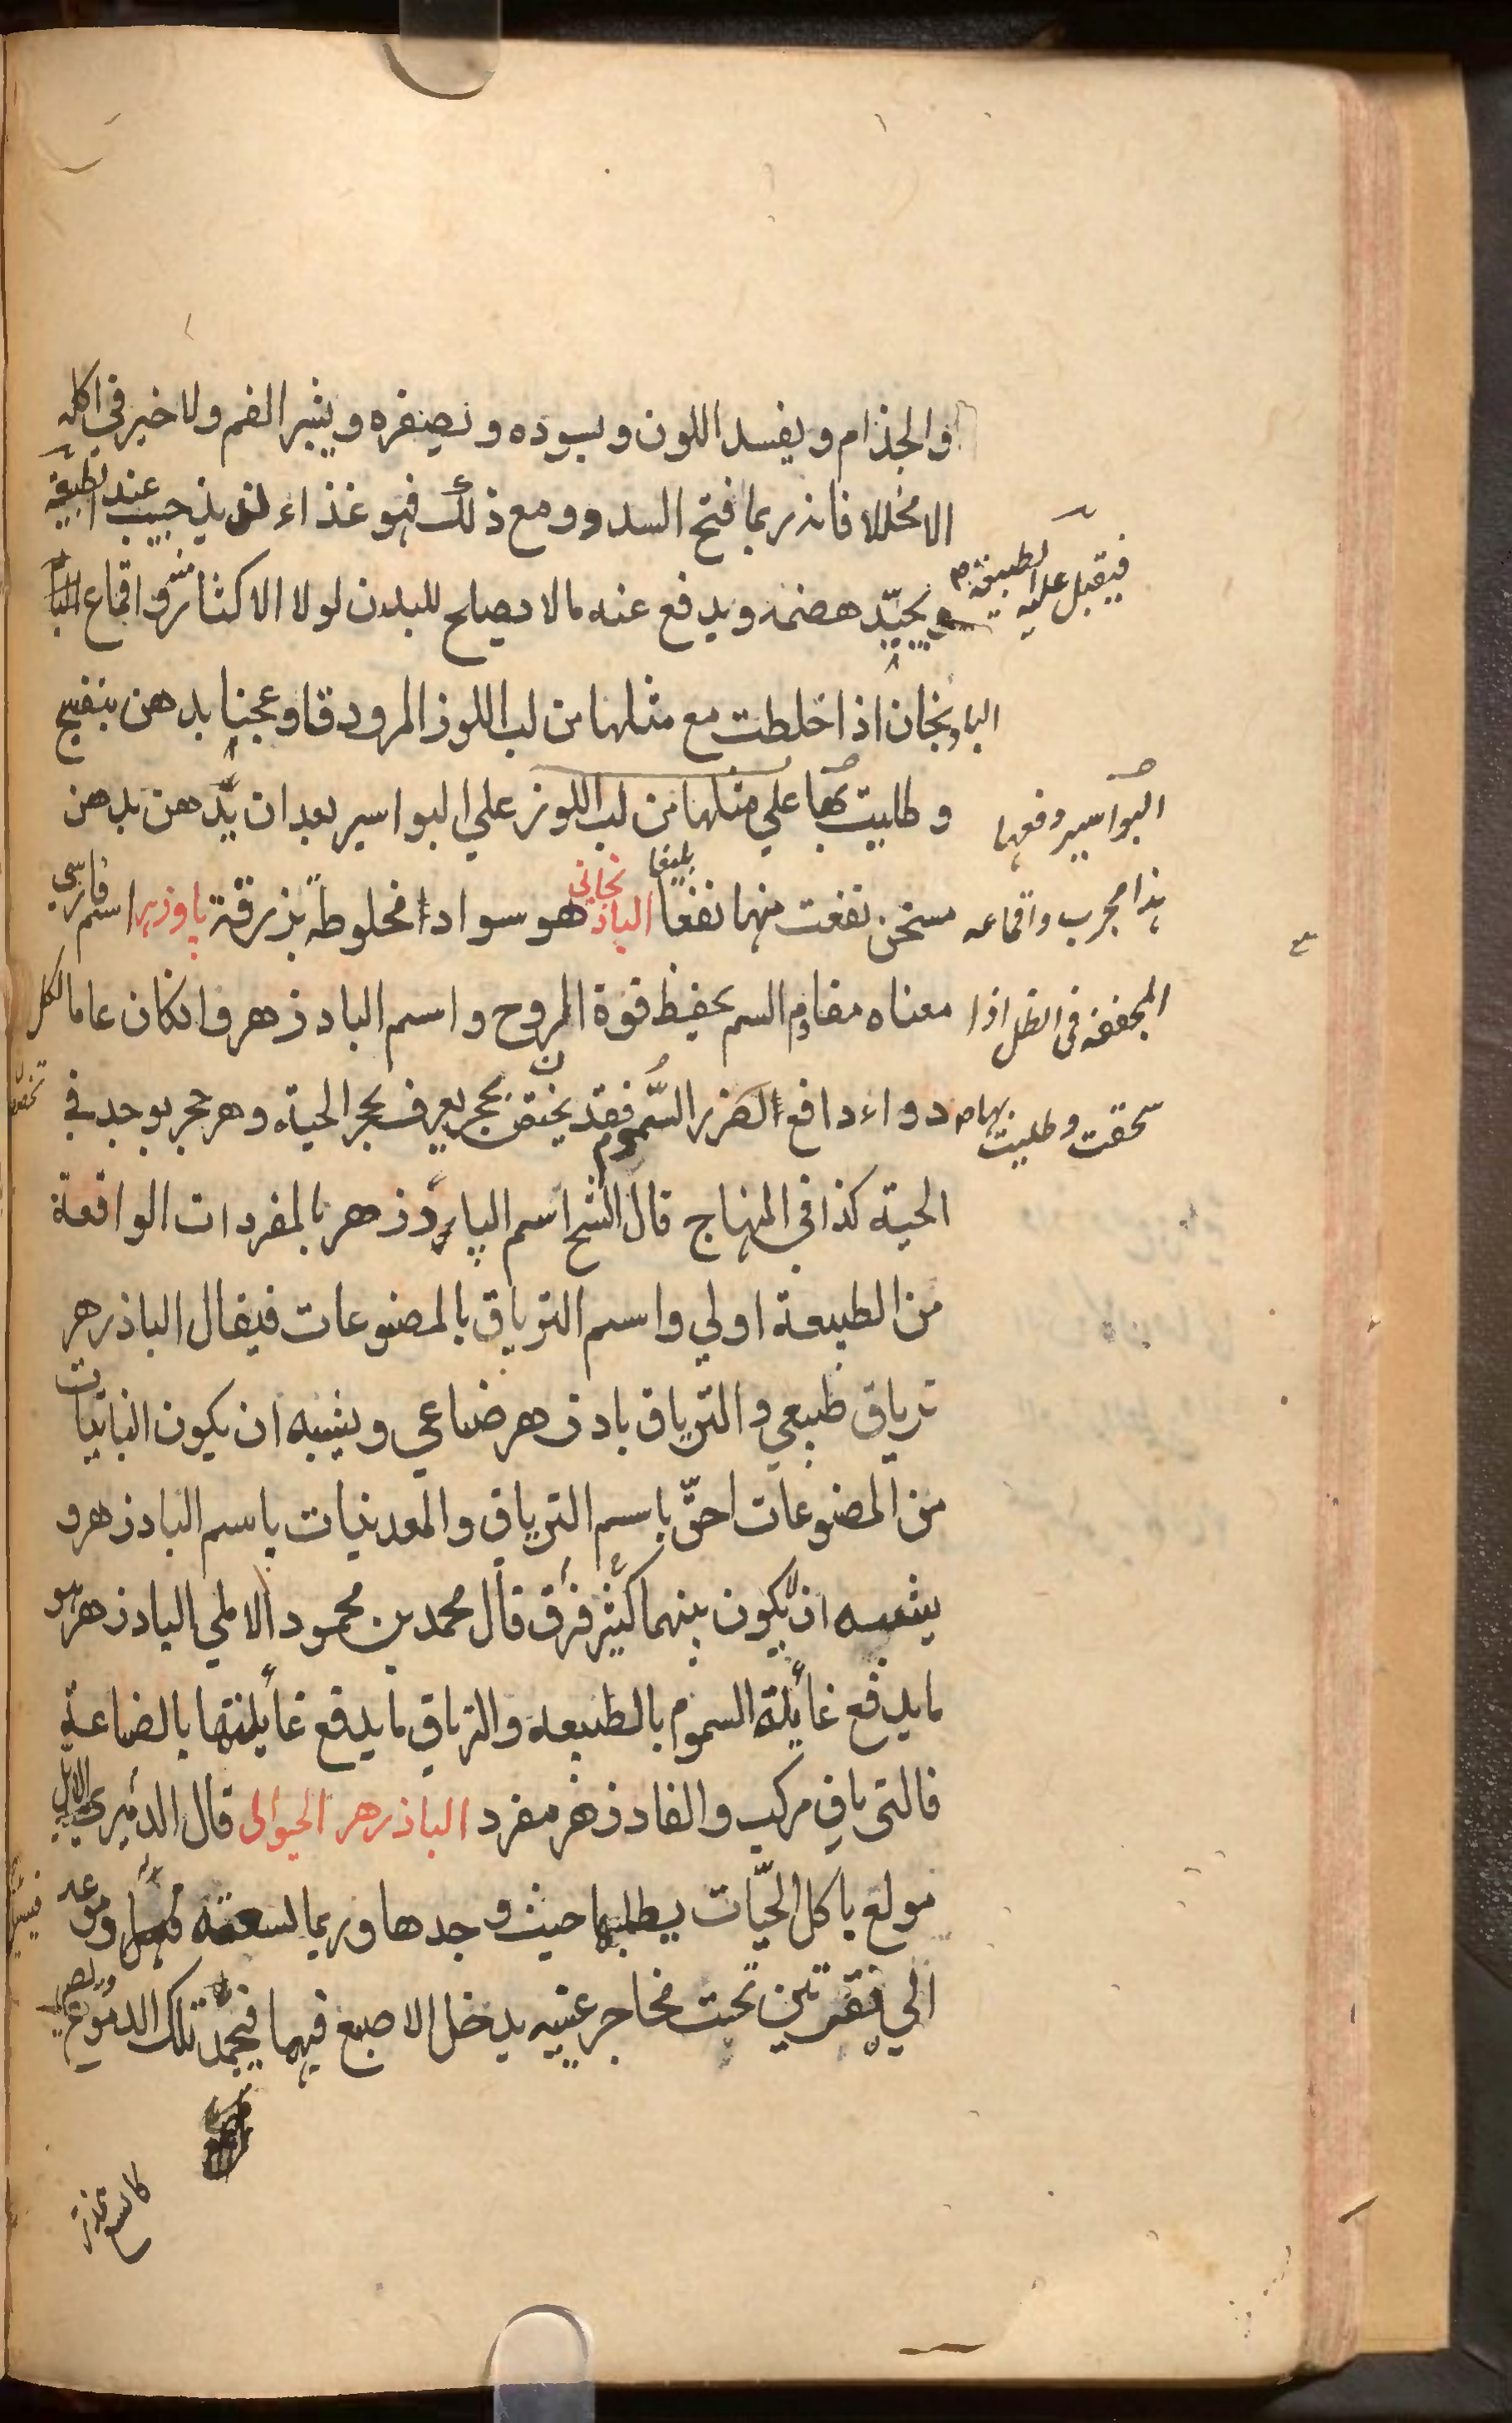 والجذام ويفسد اللون ويسوده ويصفره ويثبر الفم ولا خير في اكله
الا مخللا فانه ربما فتح السدد ومع ذلك فهو غذاء لذيذ حبيب عند الطبيعة
فيقبل عليه الطبيعة
ويجيّد هضمه ويدفع عنه ما لا يصلح للبدن لولا الاكثار منه واقماع
الباذنجان اذا خلطت مع مثلها من لب اللوز المر ودقا وعجنا بدهن بنفسج
وطليت بها على مثلها من لب اللوز على البواسير بعد ان يدهن بدهن
البواسير وفعها
هذا مجرب واقماعه
المجففة فى الظل اذا
سحقت وطليت بها
مسخن نفعت منها نفعا بليغا الباذنجانى هو سواد مخلوط بزرقة پاوزهر اسم فارسي
معناه مقاوم السم يحفظ قوة الروح واسم البادزهر وان كان عاما لكل
دواء دافع لضرر السموم فقد يختص بحجر يعرف بحجر الحية وهو حجر يوجد في
الحية كذا في المنهاج قال الشيخ اسم البادزهر بالمفردات الواقعة
من الطبيعة اولي واسم الترياق بالمصنوعات فيقال الباذزهر
ترياق طبيعي والترياق بادزهر صناعي ويشبه ان يكون النباتيات
من المصنوعات احقّ باسم الترياق والمعدنيات باسم البادزهر و
يشبه ان لا يكون بينهما كثير فرق قال محمد بن محمود الاملي البادزهر هو
ما يدفع غائلة السموم بالطبيعة والترياق ما يدفع غائلتها بالصناعة
فالترياق مركب والفادزهر مفرد الباذزهر الحيوانى قال الدميرى الايل
مولع باكل الحيّات يطلبها حيث وجدها وربما لسعته دموعه
الي نقرتين تحت محاجر عينيه يدخل الاصبع فيهما فيجمد تلك الدموع